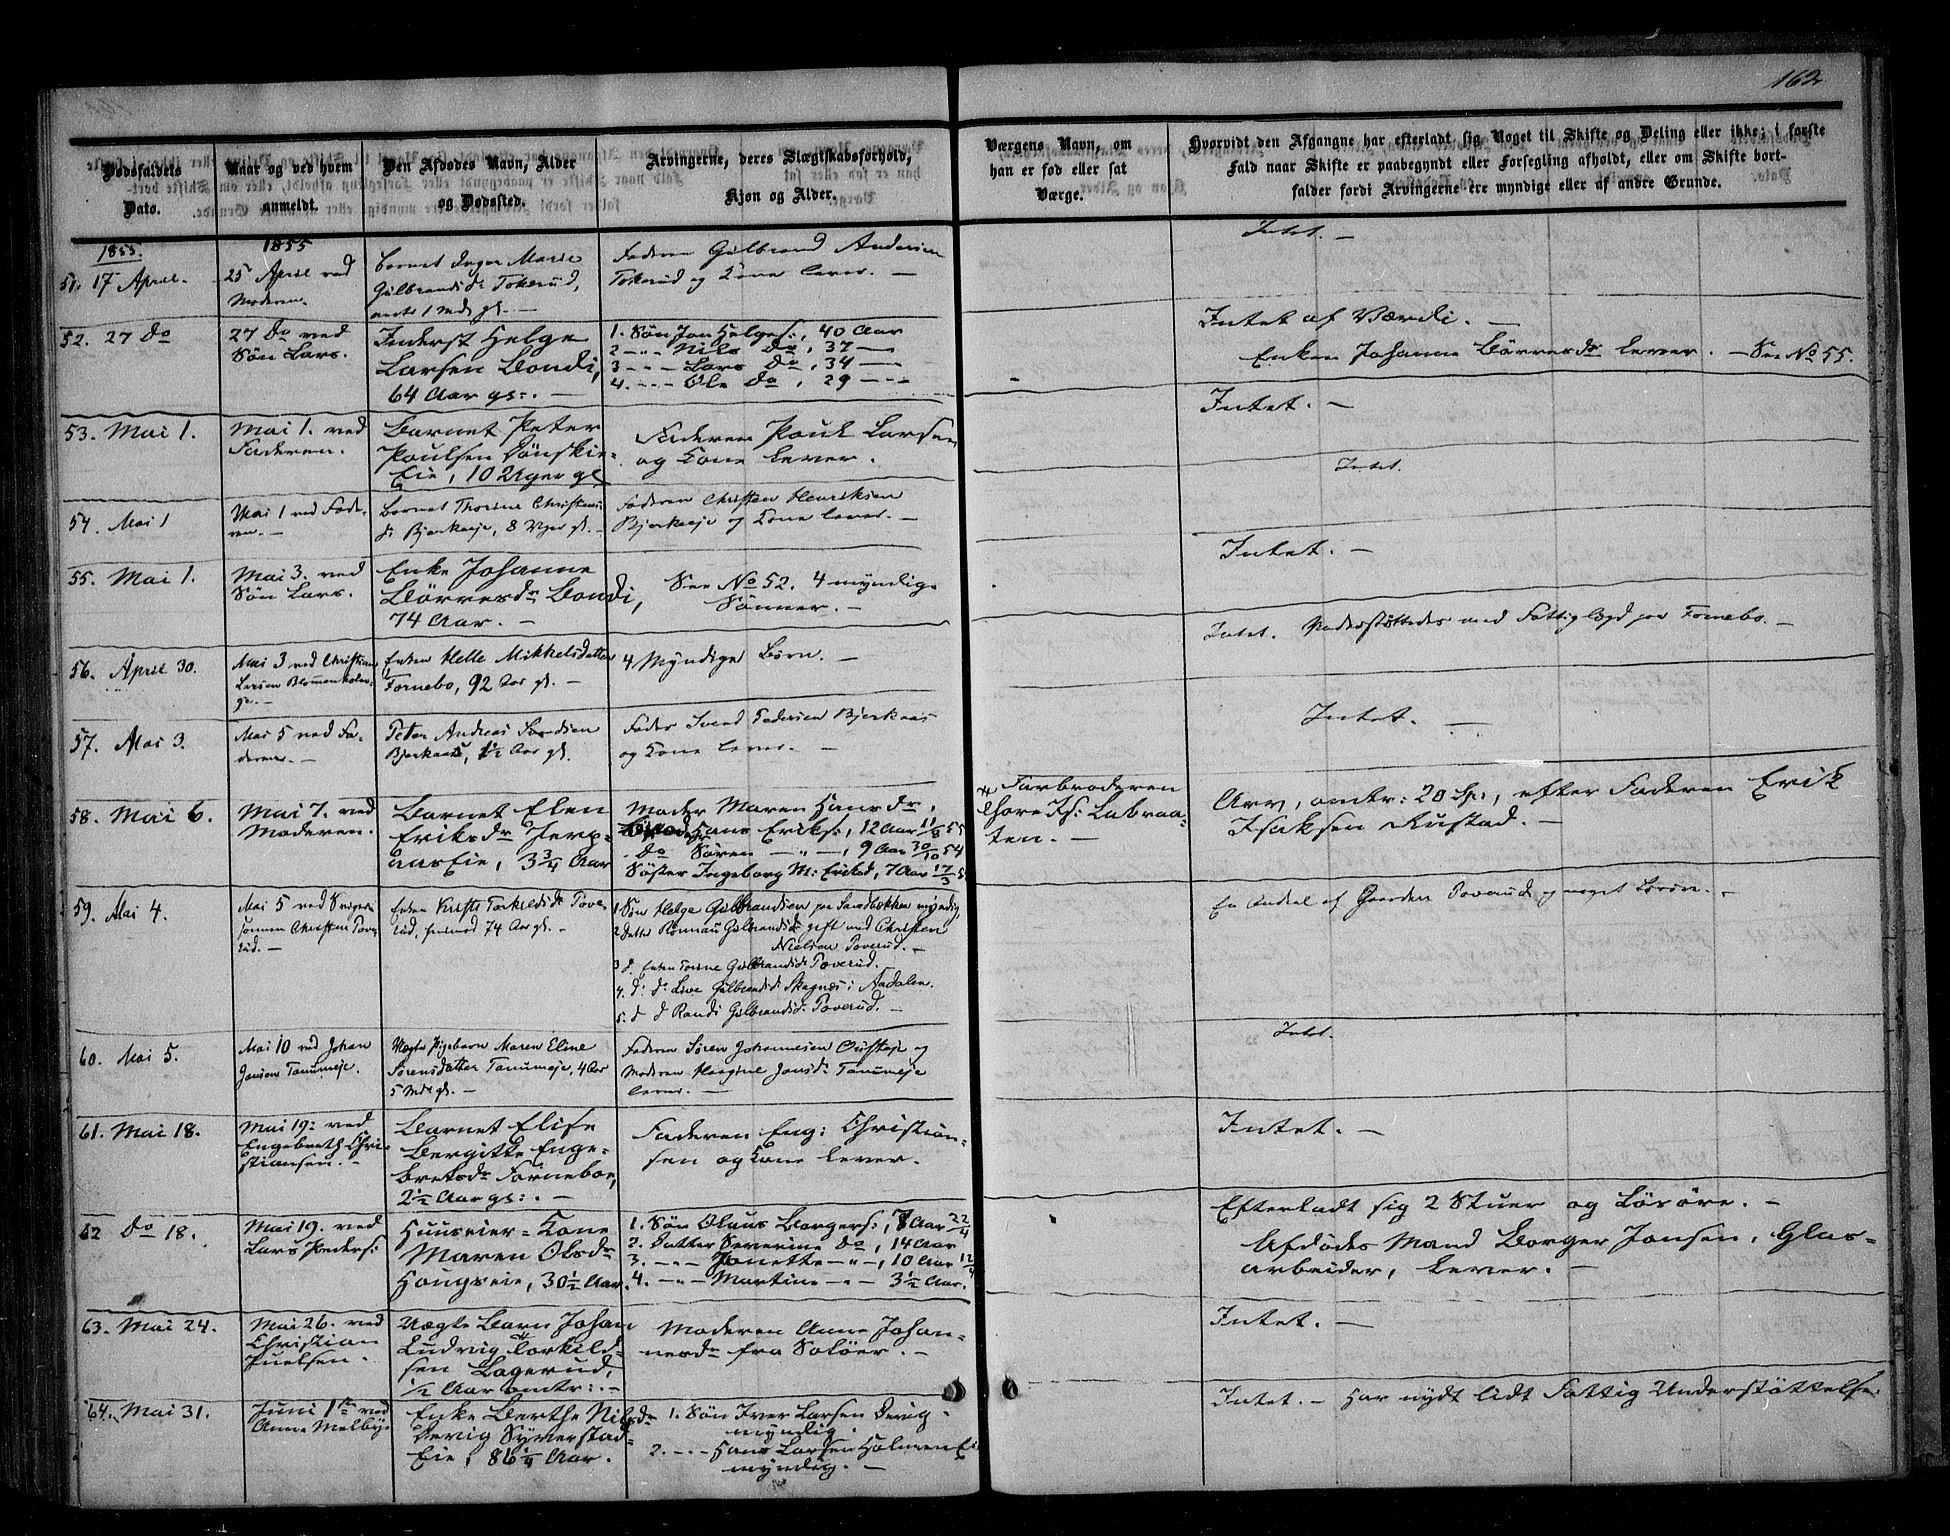 162
Dødsfaldets
Dato.
Naar og ved hvem
anmeldt.
Den Afdødes Navn, Alder
og Dødssted.
Arvingerne, deres Slægtskabsforhold,
Kjøn og Alder.
Værgens Navn, om
han er fød eller sat
Værge.
Hvorvidt den Afgangne har efterladt sig Noget til Skifte og Deling eller ikke; i første
Fald naar Skifte er paabegyndt eller Forsegling afholdt, eller om Skifte bort-
falder fordi Arvingerne ere myndige eller af andre Grunde.
1855.
51. 17 April.
1855
25 April ved
Moderen.
Barnet Inger Marie
Gulbrandsd: Tokerud,
1 Md: gl. —
Faderen Gulbrand Andersen
Tokerud og Kone lever. —
Intet. —
52. 27 do
27 do ved
Søn Lars.
Inderst Helge
Larsen Bondi,
64 Aar gl:. —
1. Søn Jon Helges:, 40 Aar
2 -„- Nils do, 37 —
3 -„- Lars do, 34 —
4. -„- Ole do, 29 —
Intet af Værdi. —
Enken Johanne Börresdr lever. — See No 55.
53. Mai 1.
Mai 1. ved
Faderen.
Barnet Peter
Poulsen Dønski-
Eie, 10 Uger gl
Faderen Poul Larsen
og Kone lever.
Intet. —
54. Mai 1
Mai 1 ved Fade-
ren. —
Barnet Thorine Christens
d: Bjerkeeje, 8 Uger gl. —
Faderen Christen Henriksen
Bjerkeeje og Kone lever. —
Intet.
55. Mai 1.
Mai 3. ved
Søn Lars.
Enke Johanne
Börresdr Bondi,
74 Aar. —
See No 52. 4 myndige
Sønner. —
Intet. —
56. April 30.
Mai 3 ved Christian
Larsen Blommenholm-
eje. —
Enken Helle Mikkelsdatter
Fornebo, 92 Aar gl. —
4 Myndige Børn. —
Intet. Understøttedes med Fattiglægd paa Fornebo. —
57. Mai 3.
Mai 5 ved Fa-
deren. —
Peter Andreas
Bjerkaas, 1½ Aar gl.
Fader Svend Pedersen Bjerkaas
og Kone lever. —
Intet. —
58. Mai 6.
Mai 7. ved
Moderen.
Barnet Elen
Eriksdr Jerp-
aasEie, 3¾ Aar
Moder Maren Hansdr,
Hans Eriks:, 12 Aar 11/8 55
do Søren —„—, 9 Aar 30/10 54
Søster Ingeborg M: Eriksd, 7 Aar 17/3
Farbroderen
Thore Is: Labraa-
ten. —
Arv, omtr: 20 Sp:, efter Faderen Erik
Isaksen Rustad. —
59. Mai 4.
Mai 5 ved Sviger-
sønnen Christen Pove-
rud. —
Enken Kirsti Torkildsd: Pove-
rud, henimod 74 Aar gl. —
1 Søn Helge Gulbrandsen paa Sandbækken myndig,
2 Datter Rønnau Gulbrandsd: gift med Christen
Nielsen Poverud. —
3 d. Enken Torine Gulbrandsd: Poverud.
4. d: d: Live Gulbrandsd: Skagnes i Aadalen.
5. d d Randi Gulbrandsd: Poverud. —
En Andeel af Gaarden Poverud og noget Løsøre. —
60. Mai 5.
Mai 10 ved Johan
Jansen Tanumeje.
Uægte Pigebarn Maren Eline
Sørensdatter Tanumeje, 4 Aar
5 Mdr gl. —
Faderen Søren Johannesen og
Moderen Jonsd: Tanumeje
lever. —
Intet.
61. Mai 18.
Mai 19: ved
Engebreth Chri-
stiansen. —
Barnet Elise
Bergitte Enge-
bretsdr Forneboe,
2½ Aar gl:. —
Faderen Eng: Christian-
sen og Kone lever.
Intet. —
62 do 18.
Mai 19. ved
Lars Peders:
Huuseier-Kone
Maren Olsdr
Hougseie, 30½ Aar.
1. Søn Olaus Borgers:, 7 Aar 22/4
2. Datter Severine do, 14 Aar
3. -„- Jonette -„-, 10 Aar 12/4
4. -„- Martine -„- 3½ Aar.
Efterladt sig 2 Stuer og Løsøre. —
Afdødes Mand Borger Jonsen, Glas-
arbeider, lever. —
63. Mai 24.
Mai 26. ved
Christian
Juelsen.
Uægte Barn Johan
Ludvig Torkild-
sen Bagerud,
½ Aar omtr:. —
Moderen Anne Johan-
nesdr fra Soløer. —
Intet. —
64. Mai 31.
Juni 1ste ved
Anne Melbye
Enke Berthe Nilsdr
Devig Syverstad-
Eie, 86¼ Aar.
1. Søn Iver Larsen Devig,
myndig.
2. -„- Hans Larsen Holmen Ei
myndig. —
Intet. — Har nydt lidt Fattig Understøttelse.